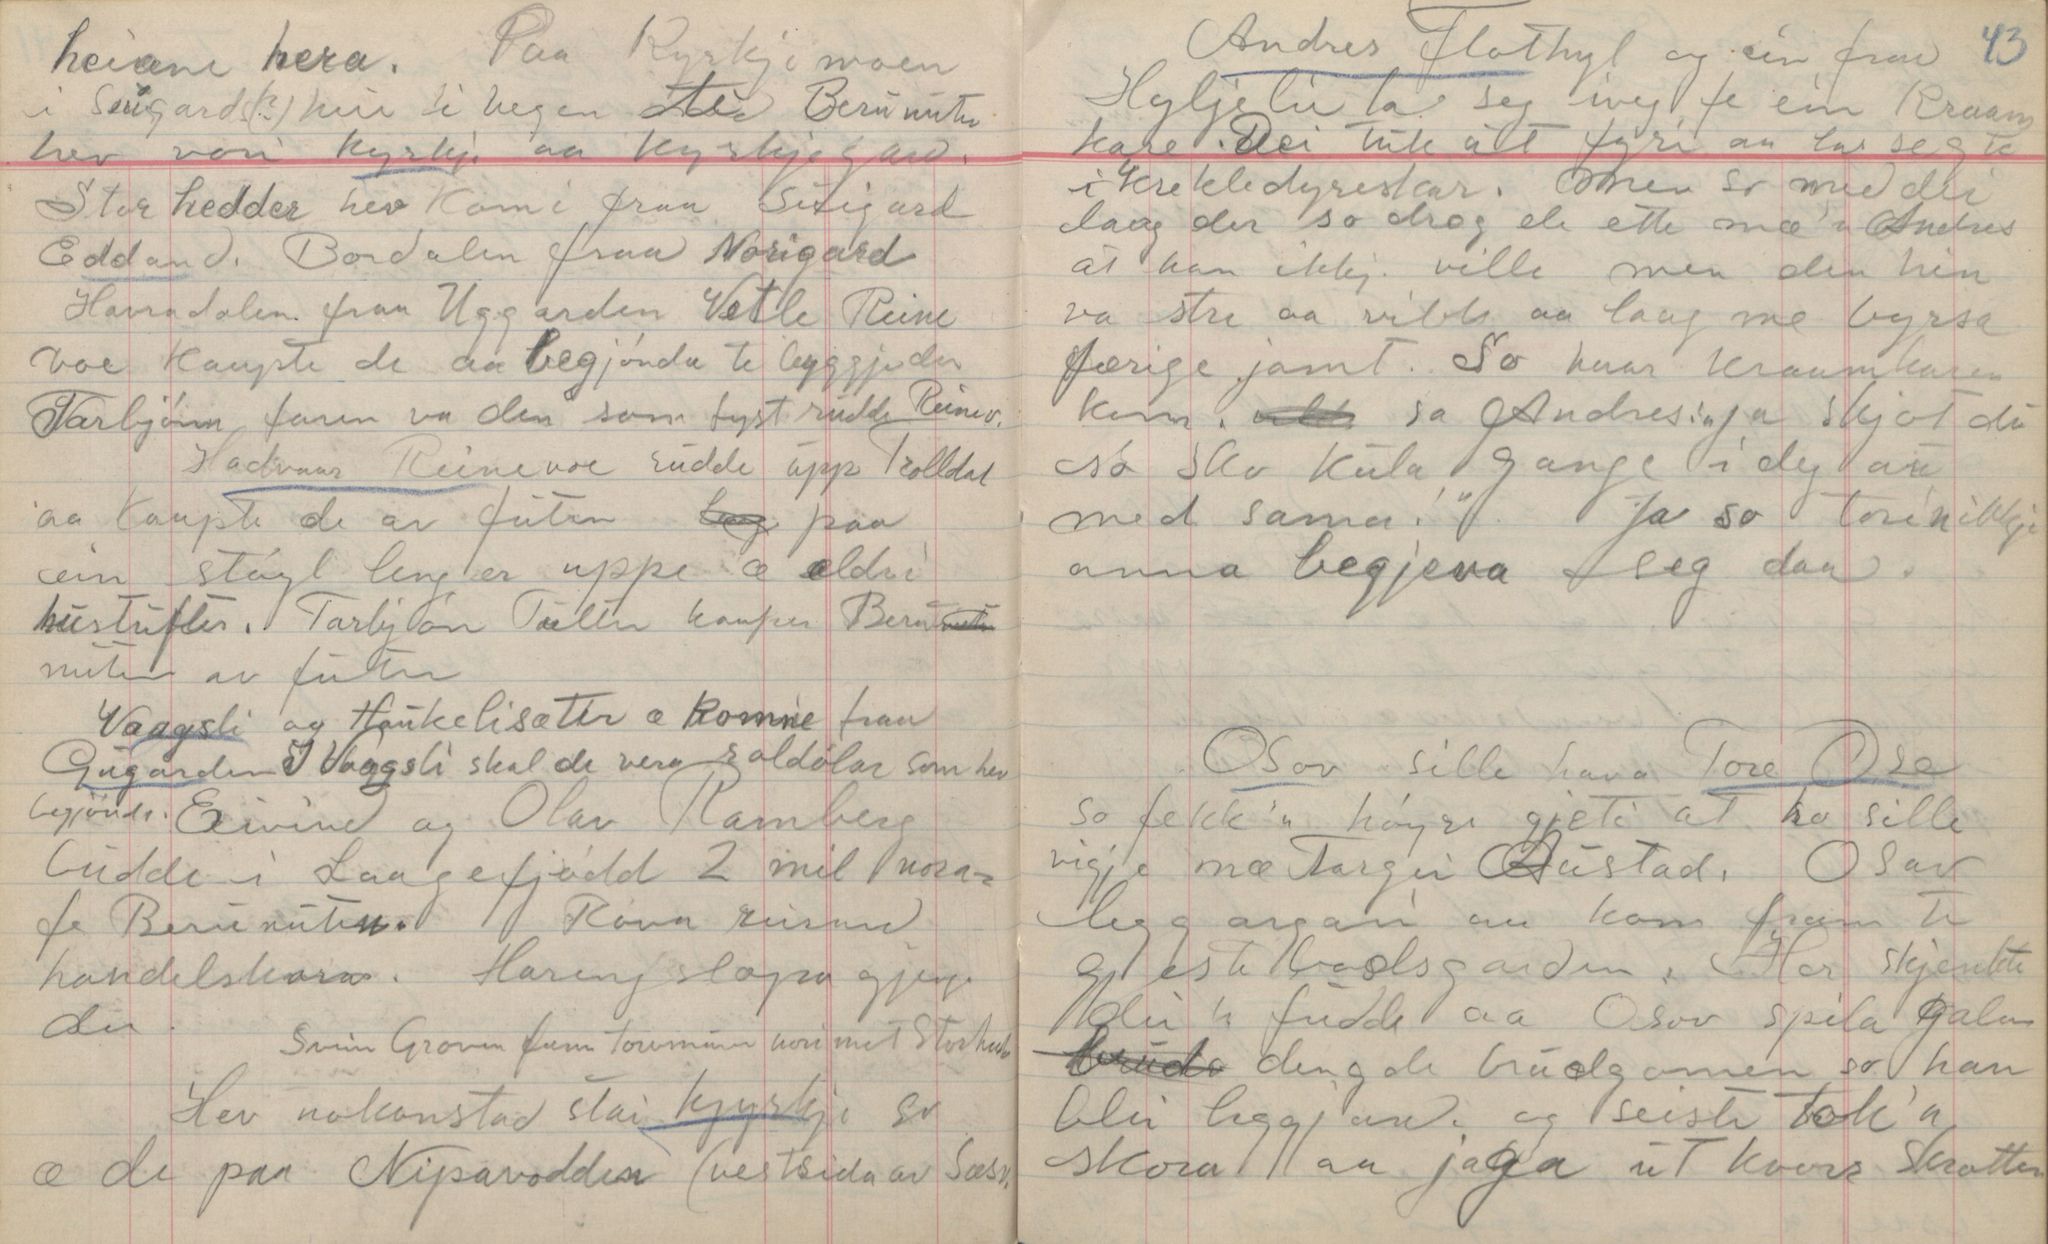 heiane hera. Paa Kyrkjemoen
i Seügards(?) hüi si hegen ved Berünüten
hev vori kyrkje aa kyrkjegard.
Storhedder hev komi fraa Süigard
Eddand. Bordalen fraa Norigard
Havradalen fraa Uggarden Vetle Reine
voe kaupte de aa begjónda te byggje der
Tarbjónn faren va den som fyst rüdde Reinev.
Hadvaar Reinevoe rüdde üpp Trolldal
aa kaupte de av füten paa
ein stóyl lenger uppe æ eldri
hüstüfter. Tarbjón Tülten kauper Berü
nüten av füten
Vaagsli og Haükelisæter æ komne fraa
Gügarden I Vaagsli skal de vera raldólar som hev
begjónde. Eivind og Olav Ramberg
büdde i Laagefjódd 2 mil nora-
fe Berünüten. Róva
handelskara. Hareng slapa gjenge
der.
Svein Groven fann toremunn nori mot Storhedd
Hev nokonstad stai kyrkje so
æ de paa Nipavodden (vestsida av Sæsv.
43
Andres Flothyl og ein fraa
Hyljelii la seg iveg fe ein Kraam
kare. Dei tük üt fyri aa la seg te
i Krekledyreskar. Men so med dei
laag der so drog de ette mæ'n Andres
at han ikkji ville men den hin
va stri aa vilde aa laag me byrsa
færige jamt. So naar kraamkaren
kom. sa Andres: "ja skjot dü
so ska küla gange i deg au
med sama!" Ja so torin ikkje
anna begjeva seg daa.
Osov sille hava Tore Ose
so fekk'n hóyre gjeti at ho sille
vigje mæ Targei Aüstad. Osav
legg argari aa kom fram te
gjestebodsgarden. Her skjenkte
dei'n füdde aa Osov spila galen
dengde brüdgomen so han
blei leggjand. og seiste tok'n
skora aa jaga üt kvors skrotten